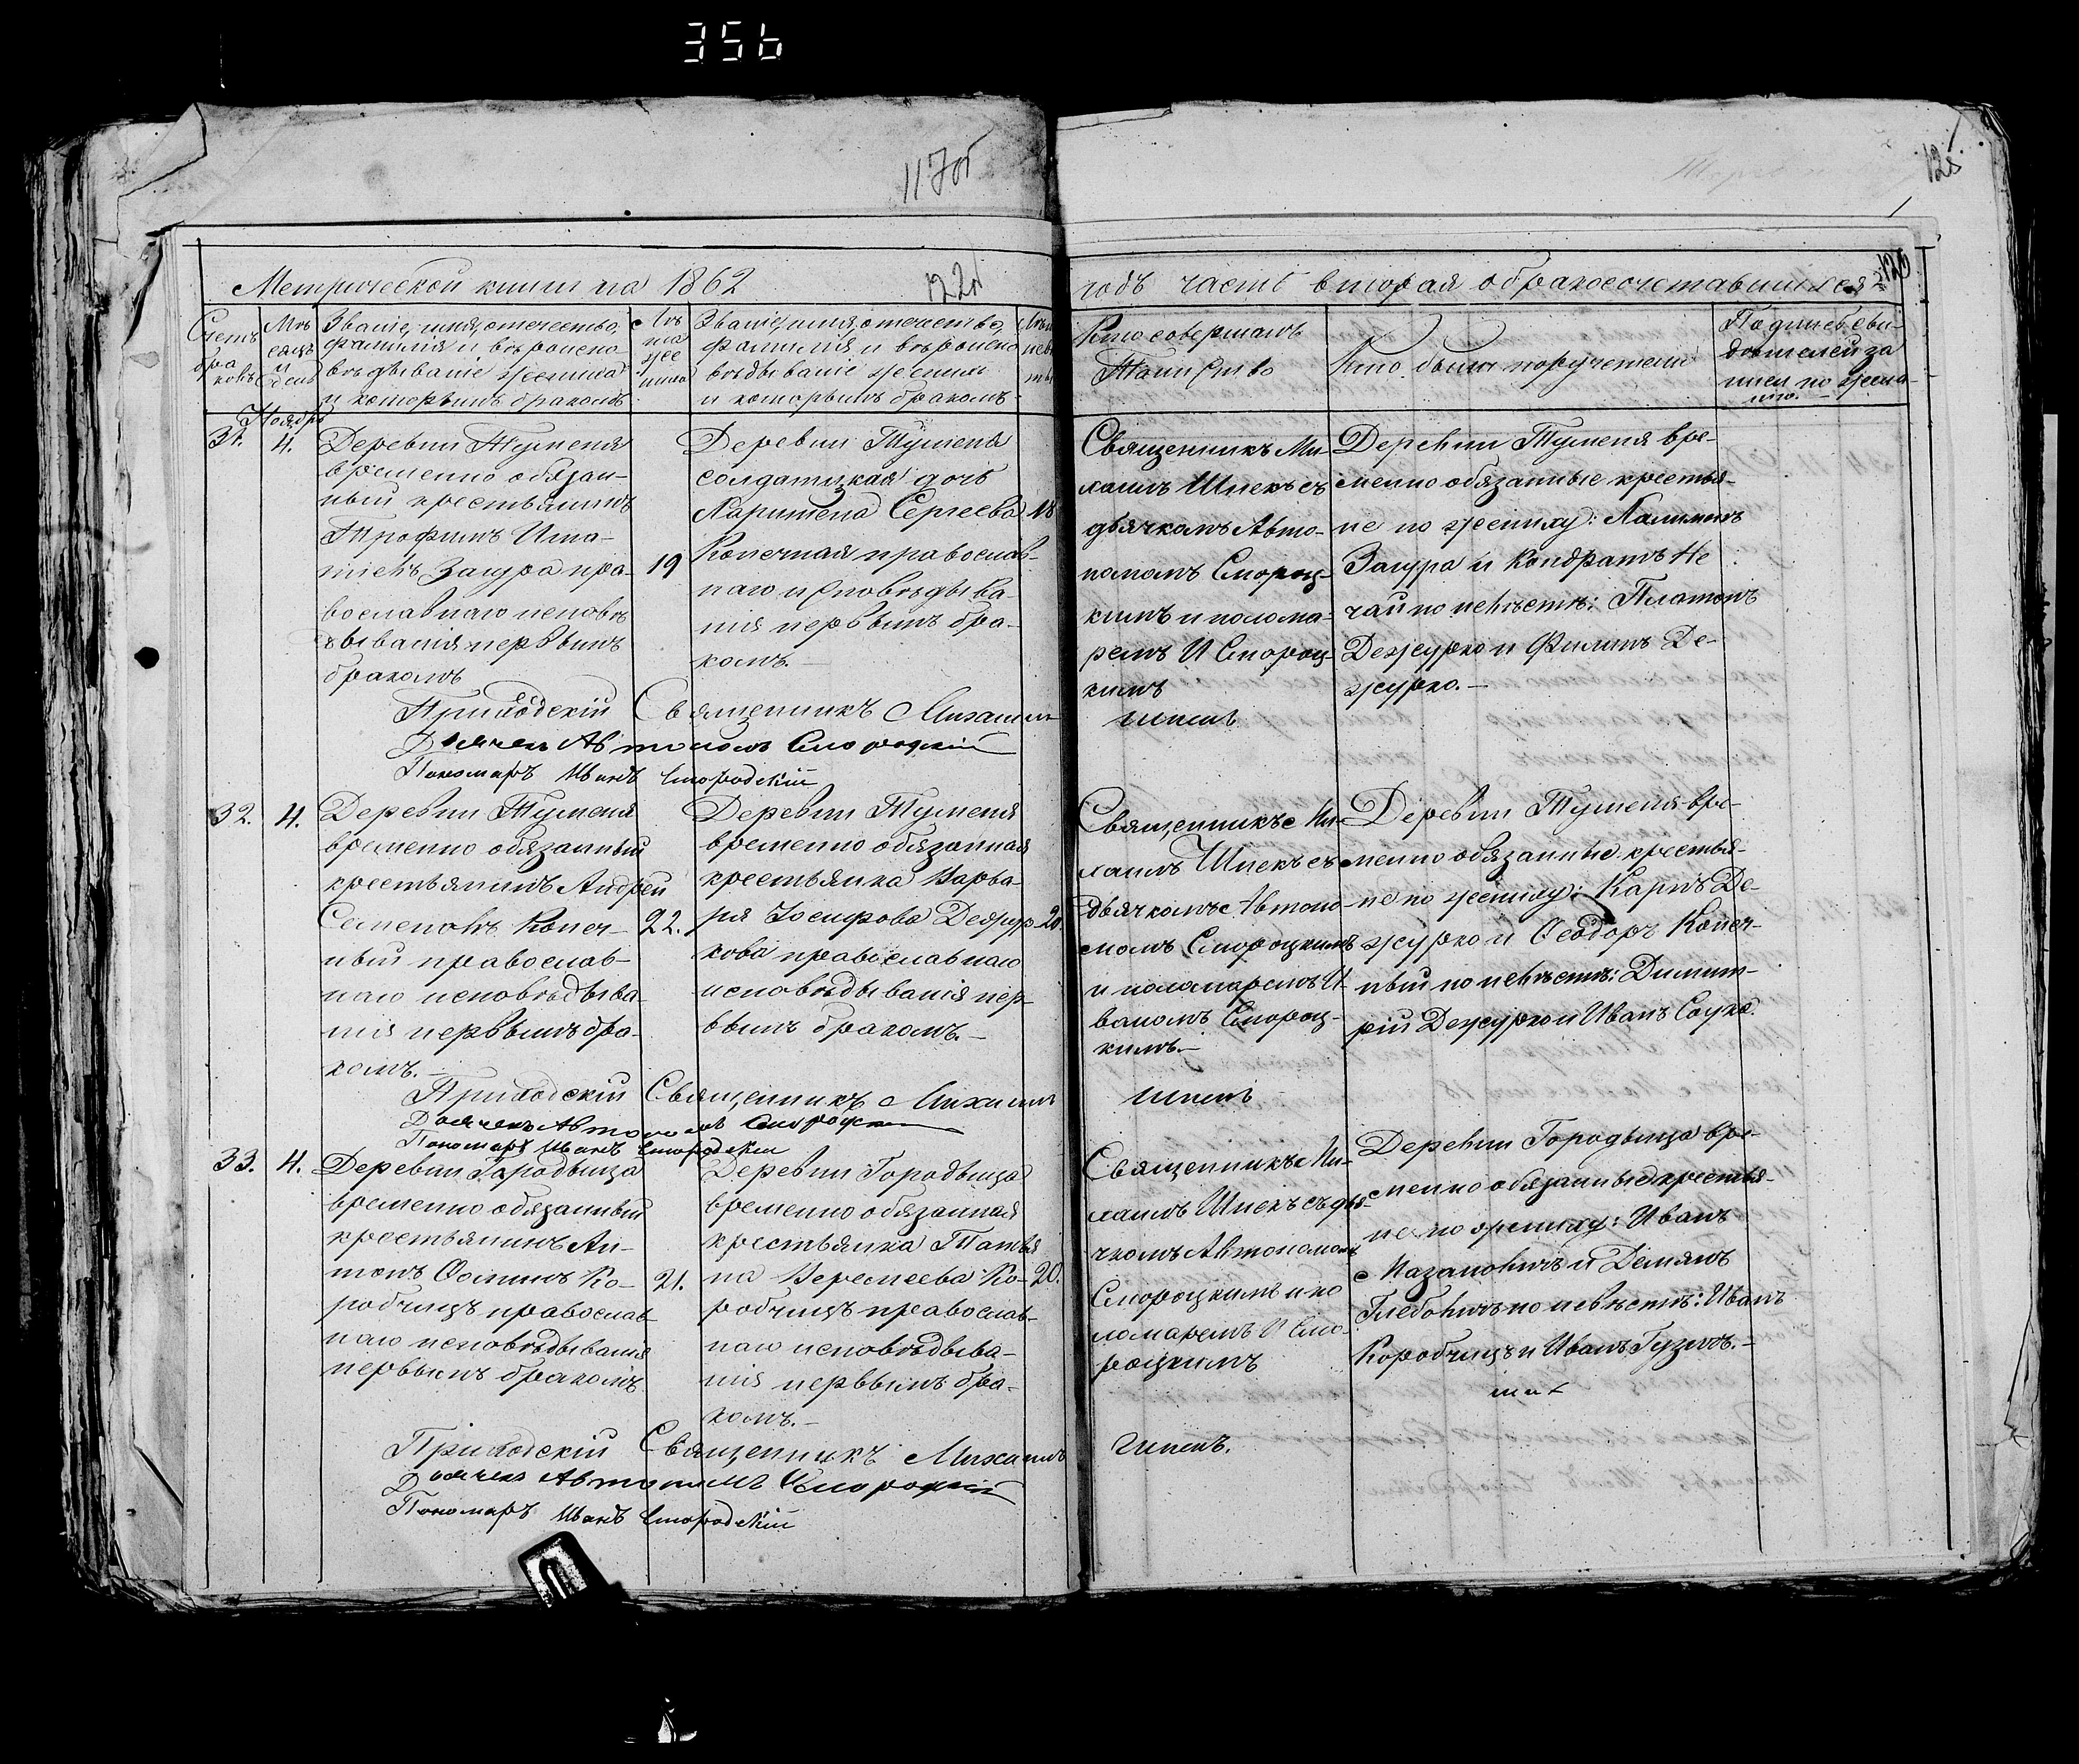 356
117об
Метрической книги на 1862
122об
годъ часть вторая о бракосочетавшихся
120
Счетъ браковъ
Мѣсяцъ и день
Званіе, имя, отечество,
фамилія и вѣроиспо-
вѣдываніе жениха
и которымъ бракомъ
Лѣта жениха
Званіе, имя, отечество,
фамилія и вѣроиспо
вѣдываніе невѣсты
и которымъ бракомъ
Кто совершалъ
Таинство
Кто были поручители
Подпись сви-
дѣтелей за
писи по жела-
нію.
Ноября
31.
4.
Деревни Туменя
временно обязан-
ный крестьянинъ
Трофимъ Игна-
тіевъ Загура пра-
вославнаго исповѣ
дыванія первымъ
бракомъ
19
Деревни Туменя
солдатская дочь
Харитена Сергеева
Конечная православ-
наго исповѣдыва-
нія первымъ бра-
комъ.
18
Священникъ Ми-
хаилъ Шпекъ съ
дьячкомъ Авто-
номомъ Смороц-
кимъ и понома-
ремъ И Смороц-
кимъ
Деревни Туменя вре-
менно обязанные крестья-
не по жениху: Калинникъ
Загура и Кондратъ Не
чай по невѣстѣ: Платонъ
Дежурко и Филипъ Де-
журко.
Приходскій Священникъ Михаилъ Шпекъ
Дьячекъ Автономъ Смородскій
Пономаръ Иванъ Смородскій
32.
4.
Деревни Туменя
временно обязанный
крестьянинъ Андрей
Семеновъ Конеч-
ный православ-
наго исповѣдыва-
нія первымъ бра-
комъ.
22.
Деревни Туменя
временно обязанная
крестьянка Варва-
ра Іосифова Дежур-
кова православнаго
исповѣдыванія пер-
вымъ бракомъ.
20
Священникъ Ми-
хаилъ Шпекъ съ
дьячкомъ Автоно-
момъ Смороцкимъ
и пономаремъ И-
ваномъ Смороц-
кимъ.
Деревни Туменя вре-
менно обязанные крестья-
не по жениху: Карпъ Де-
журко и Ѳеодоръ Конеч-
ный по невѣстѣ: Димит-
рій Дежурко и Иванъ
Приходскій Священникъ Михаилъ Шпекъ
Дьячекъ Автономъ Смородскій
Пономаръ Иванъ Смородскій
33.
4.
Деревни Городыща
временно обязанный
крестьянинъ Ан-
тонъ Ѳоминъ Ко-
робчицъ православ-
наго исповѣдыванія
первымъ бракомъ
21.
Деревни Городыща
временно обязанная
крестьянка Татья
на Веремеева Ко-
робчицъ православ-
наго исповѣдыва-
нія первымъ бра-
комъ.
20.
Священникъ Ми-
хаилъ Шпекъ съ дья-
чкомъ Автономомъ
Смороцкимъ и по
номаремъ И Смо-
роцкимъ
Деревни Городыща вре-
менно обязанные крестья-
не по жениху: Иванъ
Мазановичъ и Демянъ
Глебовичъ по невѣстѣ: Иванъ
Коробчицъ и Иванъ Гузичъ.
Приходскій Священникъ Михаилъ Шпекъ.
Дьячекъ Автономъ Смородскій
Пономаръ Иванъ Смородскій